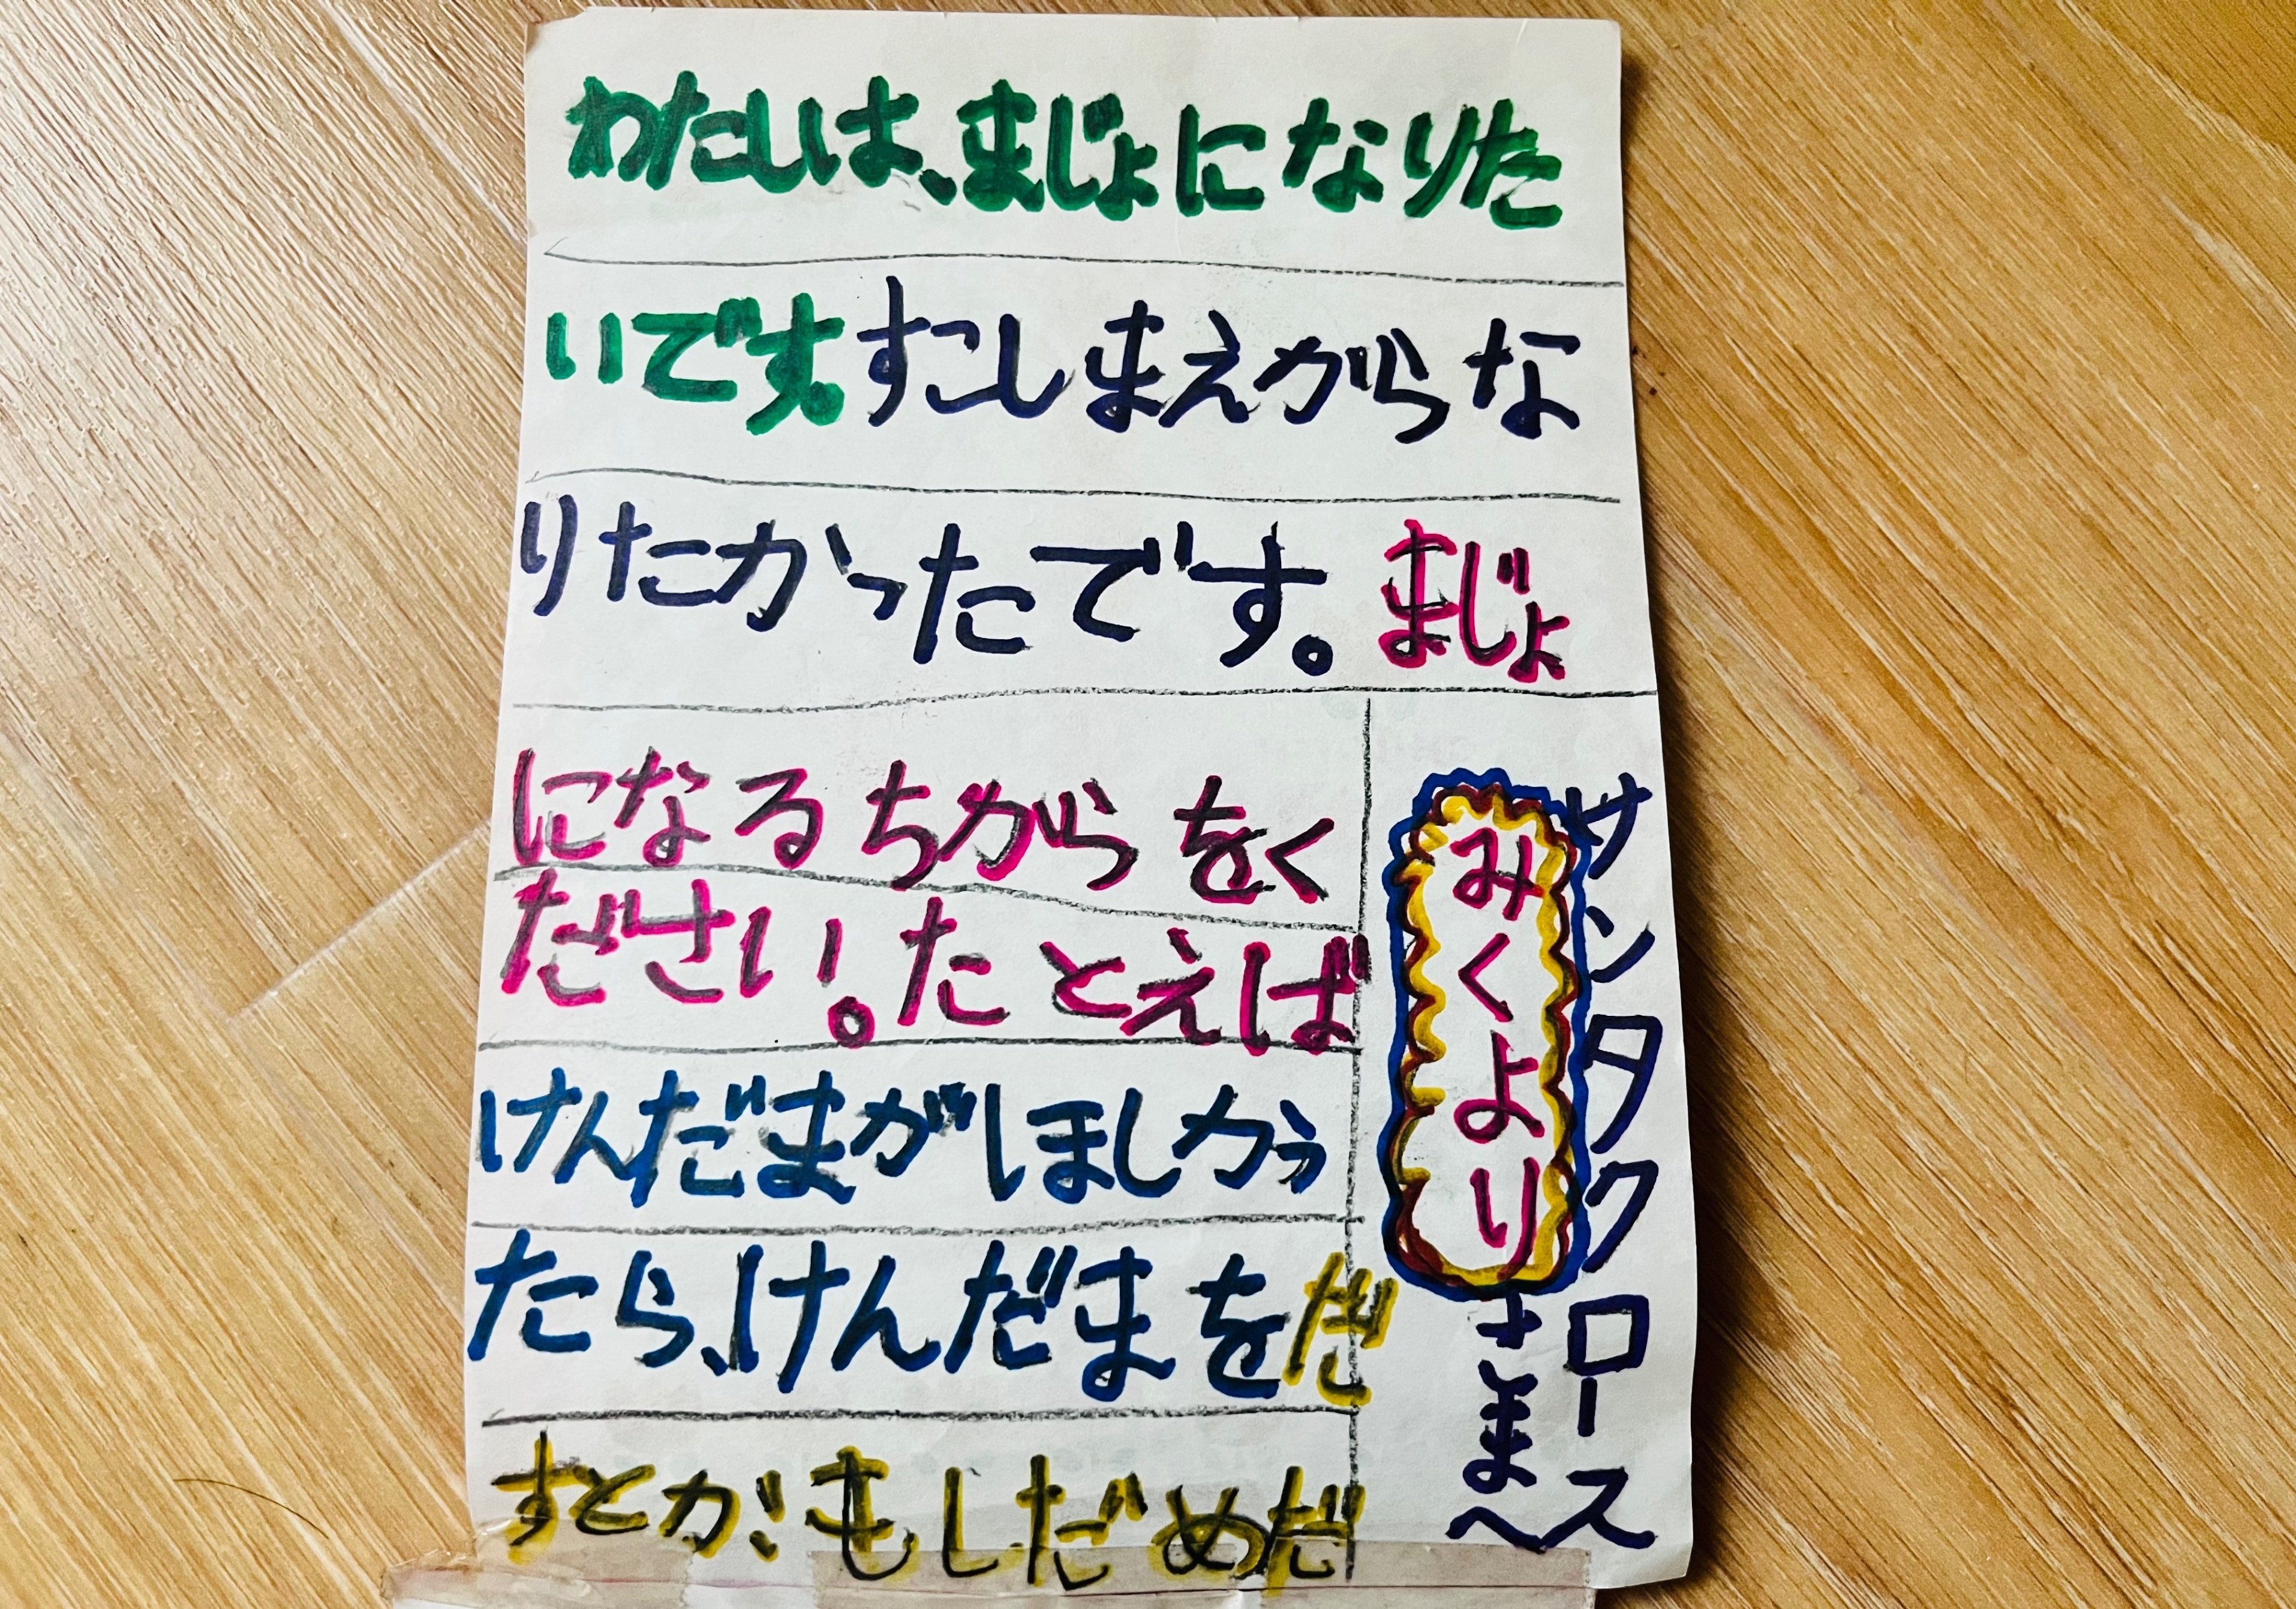 わたしは、まじょになりた
いです。すこしまえからな
りたかったです。まじょ
になるちからをく
ださい。たとえば
けんだまがほしかっ
たら、けんだまをだ
すとか!もしだめだ
サンタクロース
さまへ
みくより